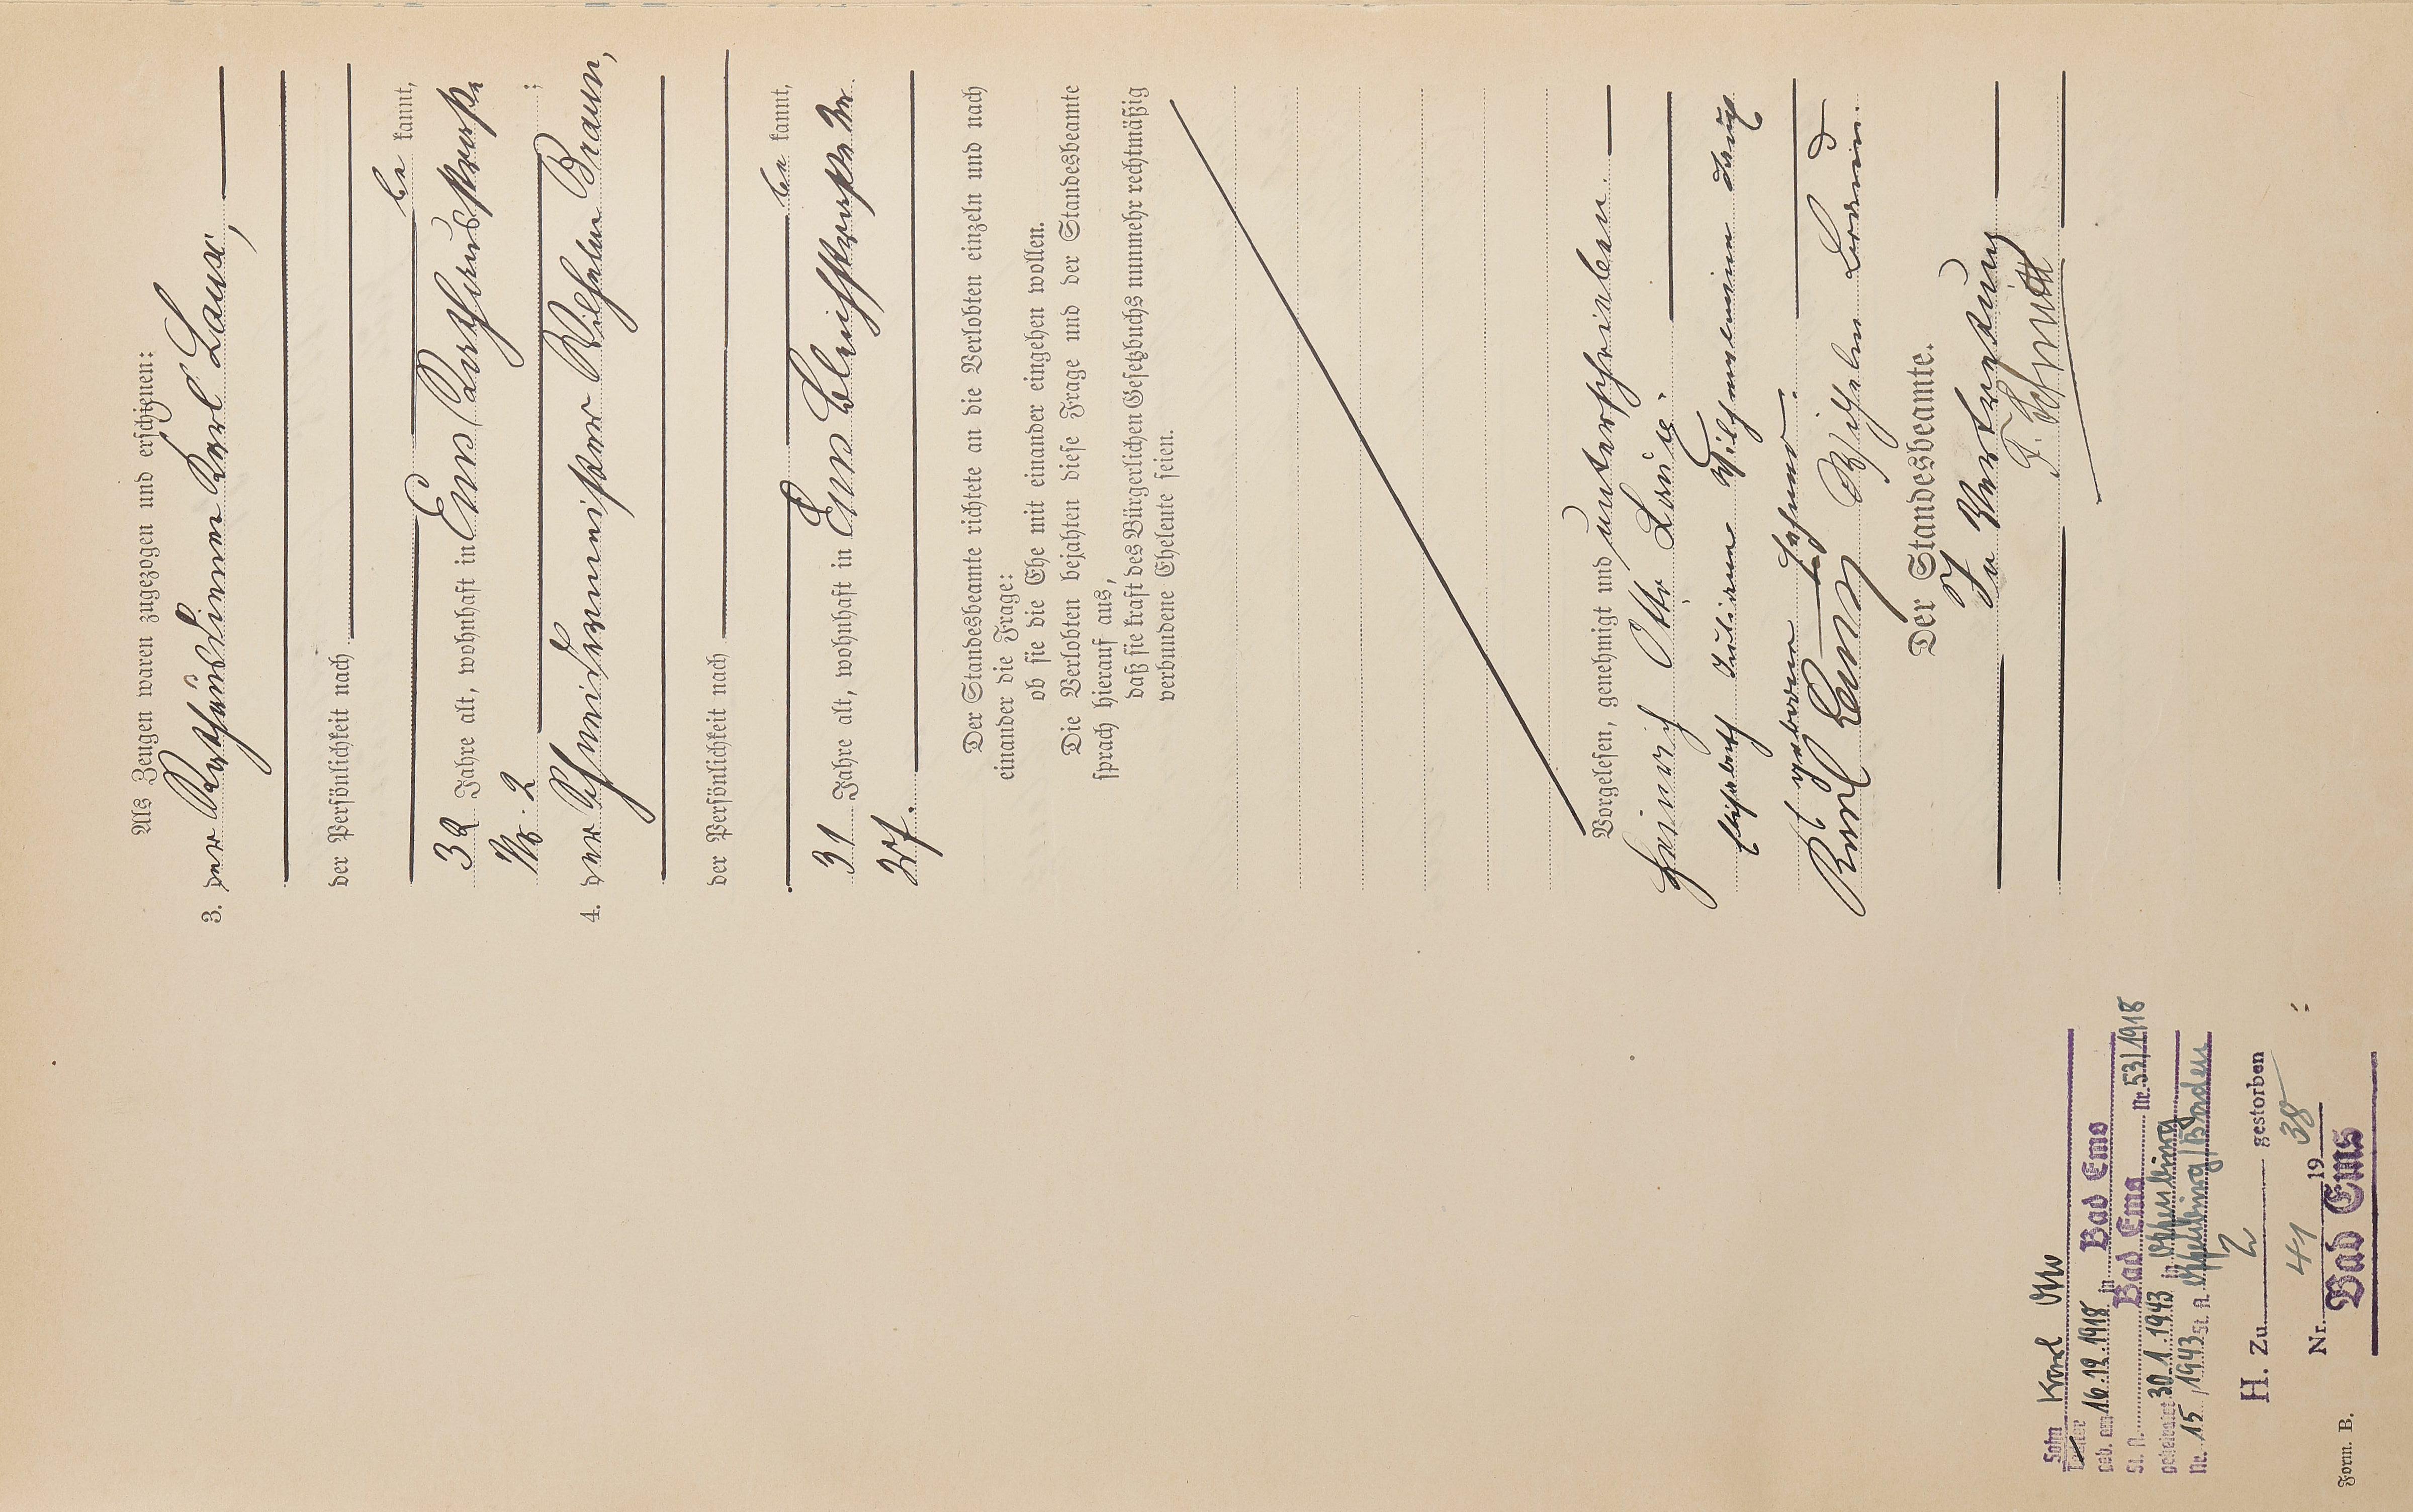 Als Zeugen waren zugezogen und erschienen:
3. der Rathausdiener Karl Laux,
der Persönlichkeit nach
be kannt,
32 Jahre alt, wohnhaft in Ems Rathausstraße
No. 2 ;
4. der Schneidermeister Wilhelm Braun,
der Persönlichkeit nach
be kannt,
31 Jahre alt, wohnhaft in Ems Bleichstraße No.
27.
Der Standesbeamte richtete an die Verlobten einzeln und nach
einander die Frage:
ob sie die Ehe mit einander eingehen wollen.
Die Verlobten bejahten diese Frage und der Standesbeamte
sprach hierauf aus,
daß sie kraft des Bürgerlichen Gesetzbuchs nunmehr rechtmäßig
verbundene Eheleute seien.
Vorgelesen, genehmigt und unterschrieben
Heinrich Otto
Elisabeth Juliane Wilhelmine
geborene
Karl Laux Wilhelm Braun.
Der Standesbeamte.
In Vertretung
F. Schmitt
Sohn Karl Otto
Tochter
geb. am 16.12.1918 in Bad Ems
St. A. Bad Ems Nr. 53/1918
geheiratet 30.1.1943 in
Nr. 15/1943 St. A. /Baden
H. Zu 2 gestorben
Nr. 41 1938
Bad Ems
Form. B.